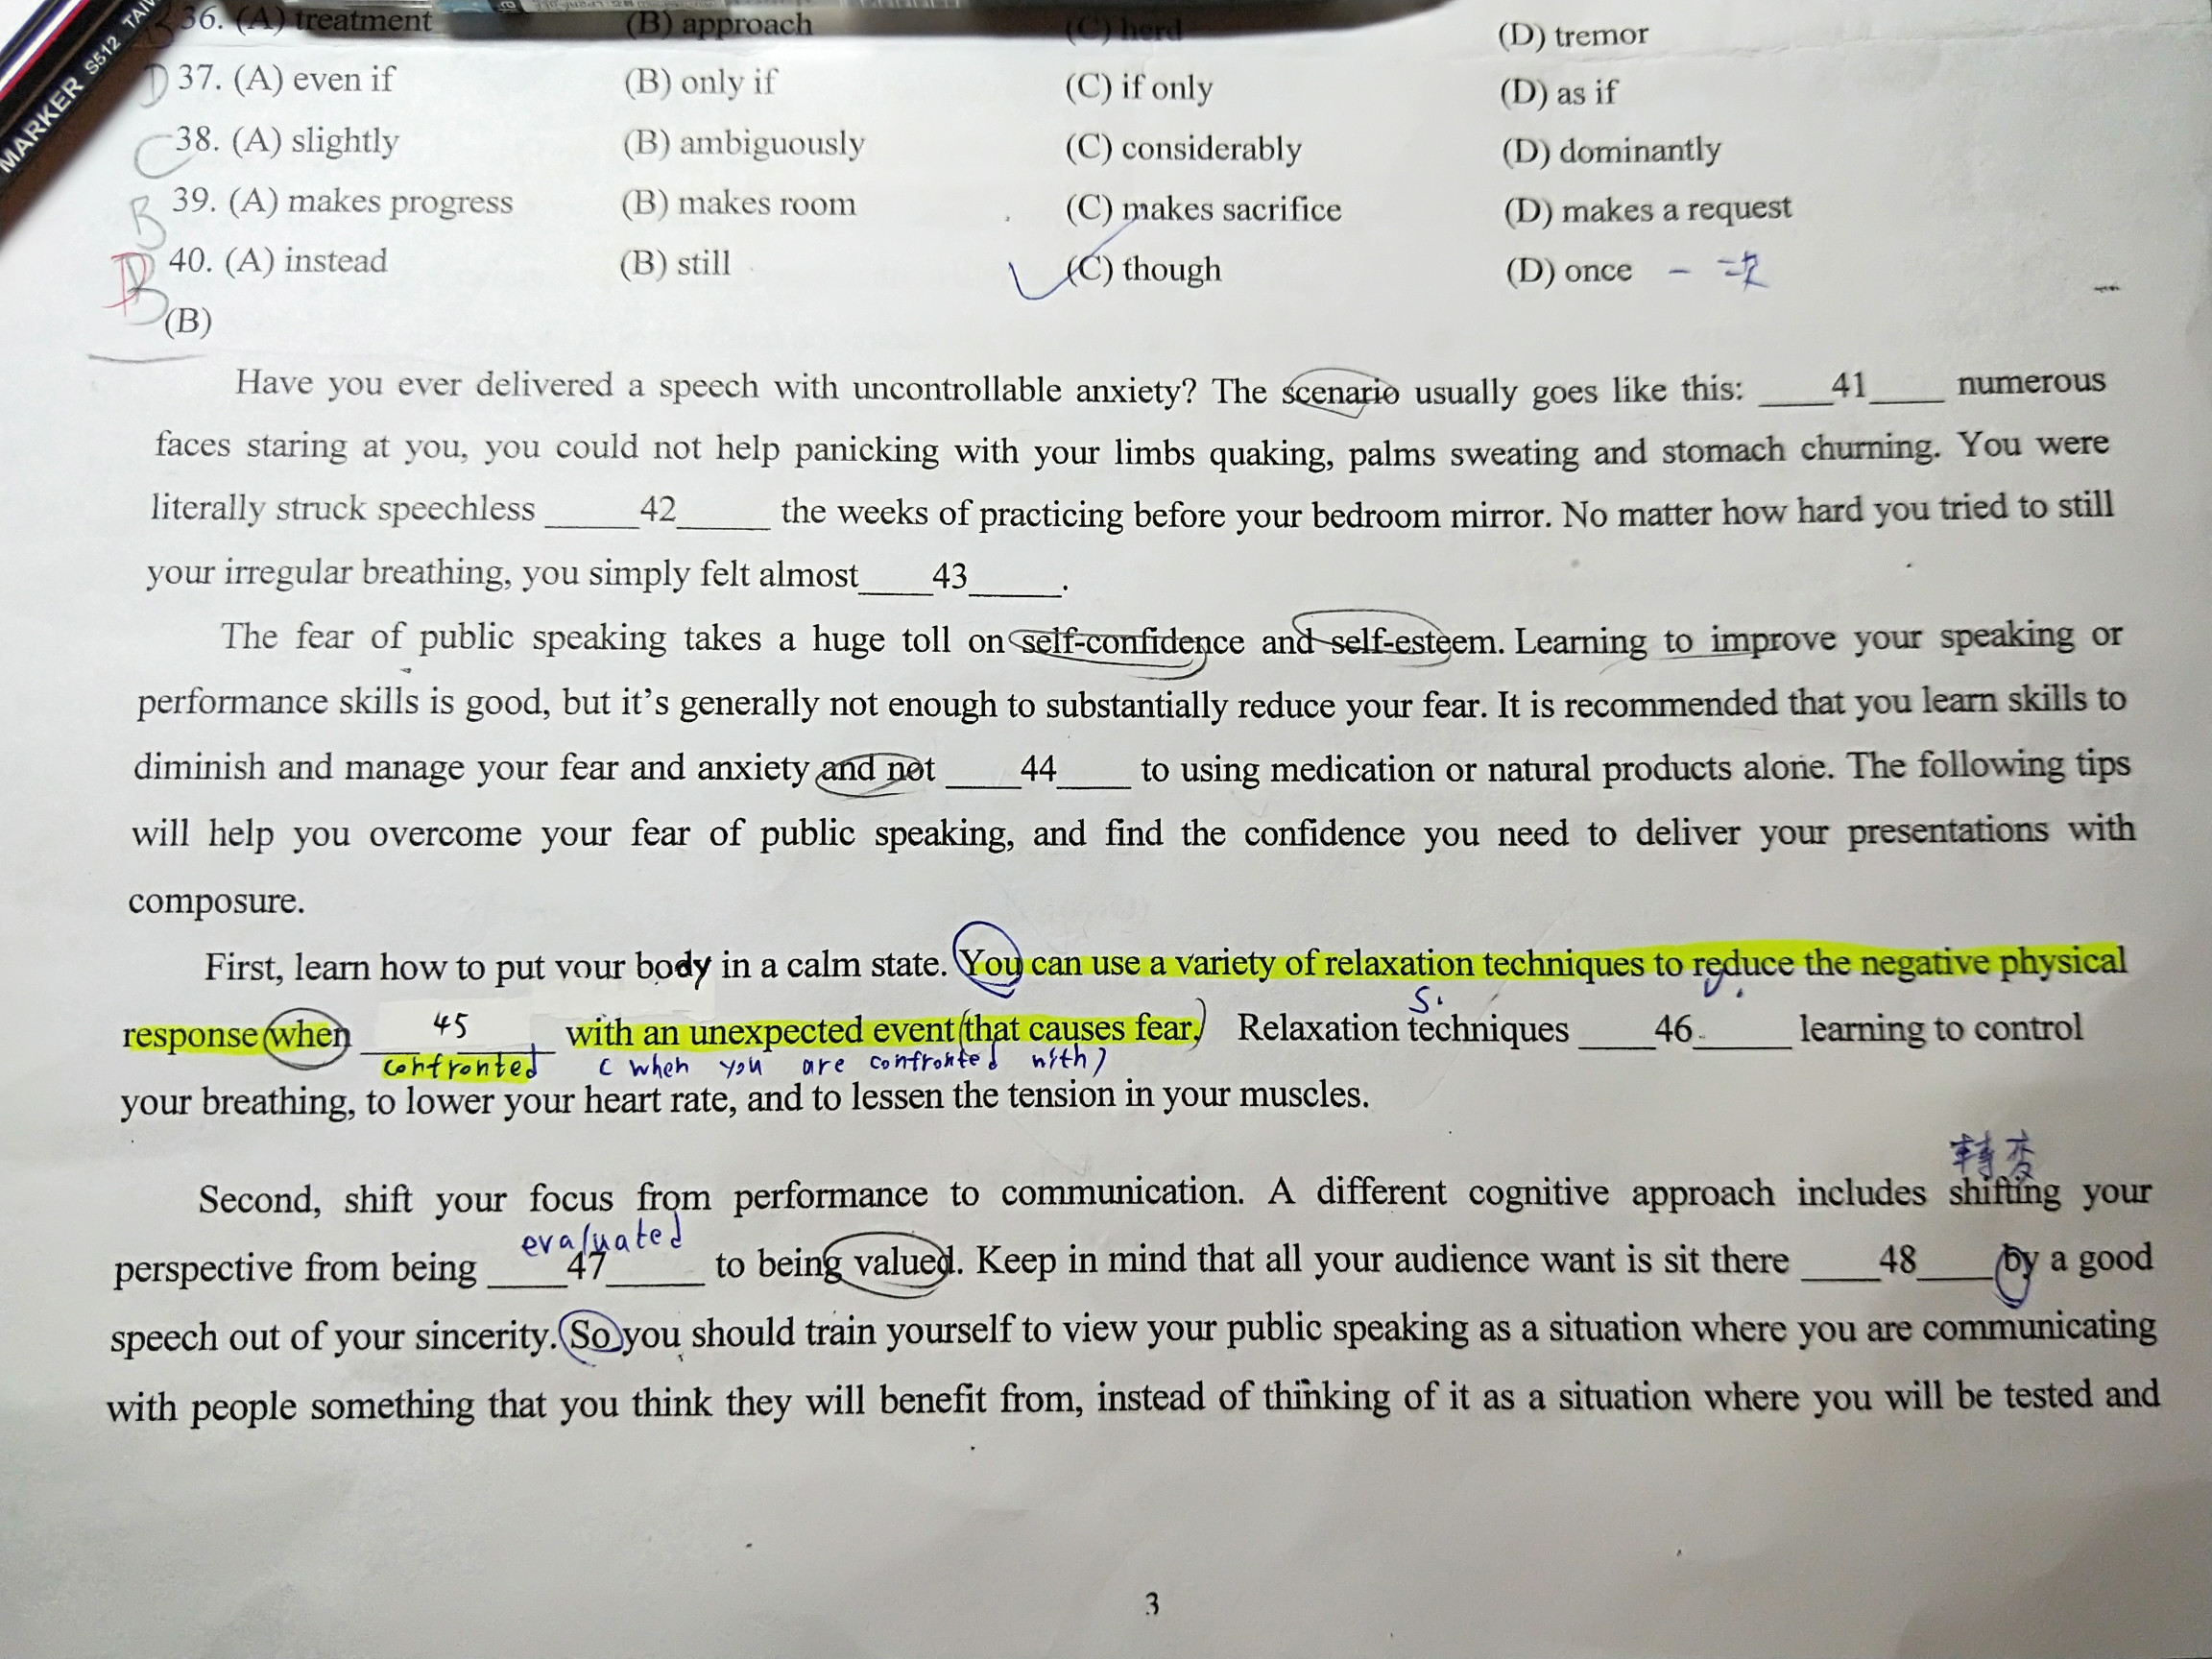 MARKER S512 TAIW
36. (A) treatment (B) approach (C) herd (D) tremor
D 37. (A) even if (B) only if (C) if only (D) as if
C 38. (A) slightly (B) ambiguously (C) considerably (D) dominantly
B 39. (A) makes progress (B) makes room (C) makes sacrifice (D) makes a request
D B 40. (A) instead (B) still (C) though (D) once 一次
(B)
Have you ever delivered a speech with uncontrollable anxiety? The scenario usually goes like this: ____41____ numerous
faces staring at you, you could not help panicking with your limbs quaking, palms sweating and stomach churning. You were
literally struck speechless _____42_____ the weeks of practicing before your bedroom mirror. No matter how hard you tried to still
your irregular breathing, you simply felt almost____43_____.
The fear of public speaking takes a huge toll on self-confidence and self-esteem. Learning to improve your speaking or
performance skills is good, but it's generally not enough to substantially reduce your fear. It is recommended that you learn skills to
diminish and manage your fear and anxiety and not ____44____ to using medication or natural products alone. The following tips
will help you overcome your fear of public speaking, and find the confidence you need to deliver your presentations with
composure.
First, learn how to put your body in a calm state. You can use a variety of relaxation techniques to reduce the negative physical
S. V.
response when ____45____ with an unexpected event that causes fear. Relaxation techniques ____46_____ learning to control
confronted (when you are confronted with)
your breathing, to lower your heart rate, and to lessen the tension in your muscles.
轉変
Second, shift your focus from performance to communication. A different cognitive approach includes shifting your
evaluated
perspective from being ____47_____ to being valued. Keep in mind that all your audience want is sit there ____48____ by a good
speech out of your sincerity. So you should train yourself to view your public speaking as a situation where you are communicating
with people something that you think they will benefit from, instead of thinking of it as a situation where you will be tested and
3